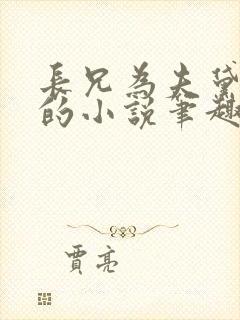 長兄為夫黛
的小說筆趣
賈亮